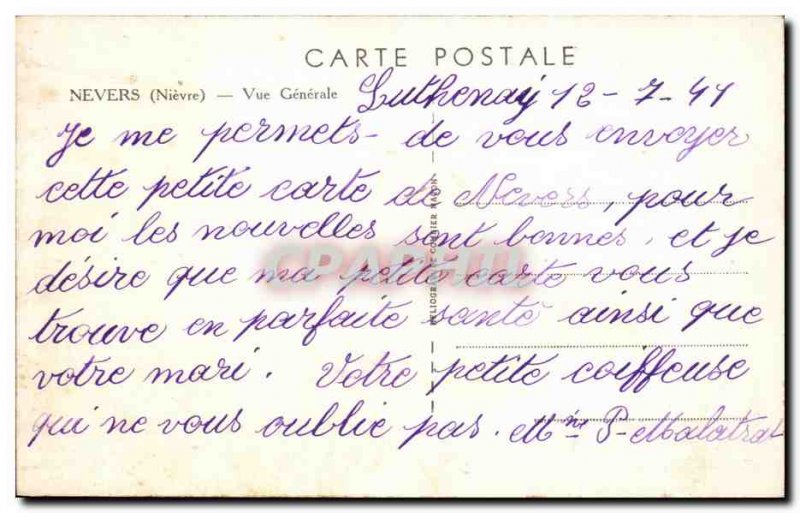 CARTE POSTALE
NEVERS (Nièvre) — Vue Générale
Luthenay 12-7-41
Je me permets de vous envoyer
cette petite carte de Nevers, pour
moi les nouvelles sont bonnes, et je
désire que ma petite carte vous
trouve en parfaite santé ainsi que
votre mari. Votre petite coiffeuse
qui ne vous oublie pas. Mme P-Malatrat
HELIOGRAVURE COMBIER MACON